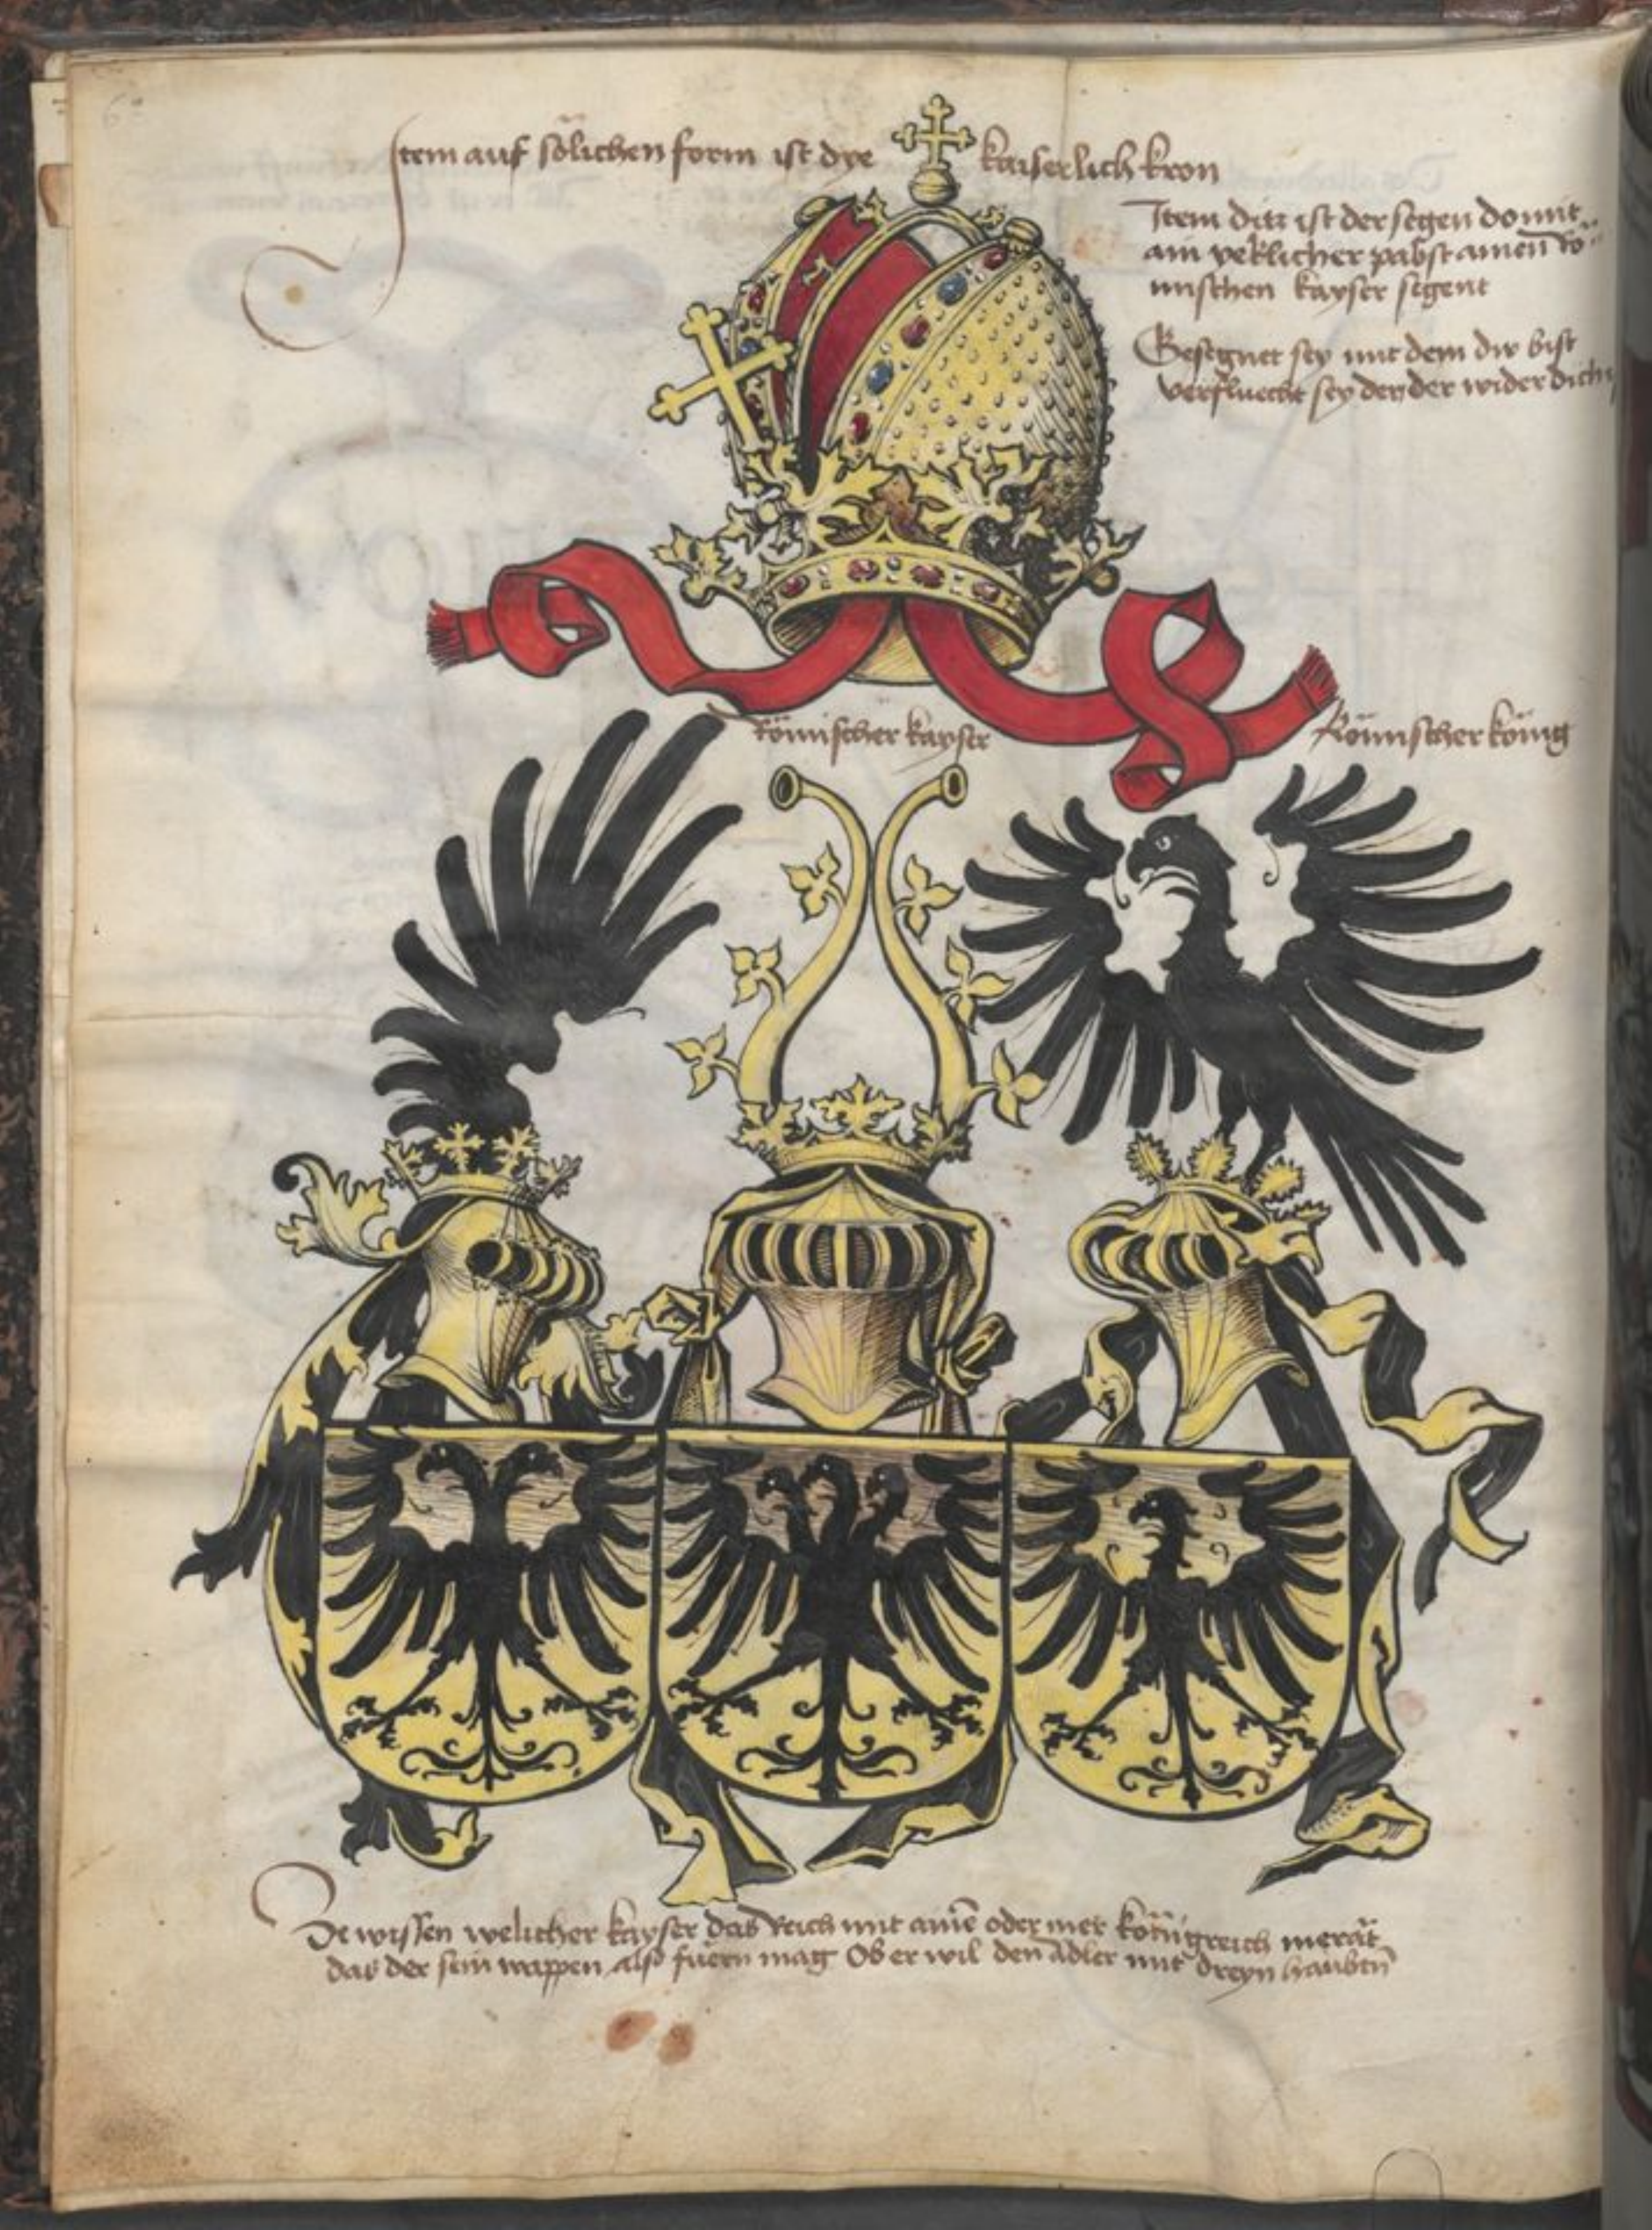 6
Item auf sölichen form ist dye kaiserlich kron
Item ditz ist der segen domit
ain yeklicher pabst ainen rö
mischen kayser segent
Gesegnet sey mit dem dw bist
verfluecht sey der der wider dich
Römischer kayser
Römischer König
Ze wissen welicher kayser das Reich mit aine oder mer königreich merät
das der sein wappen also füern mag Ob er wil den adler mit dreyn haubtn